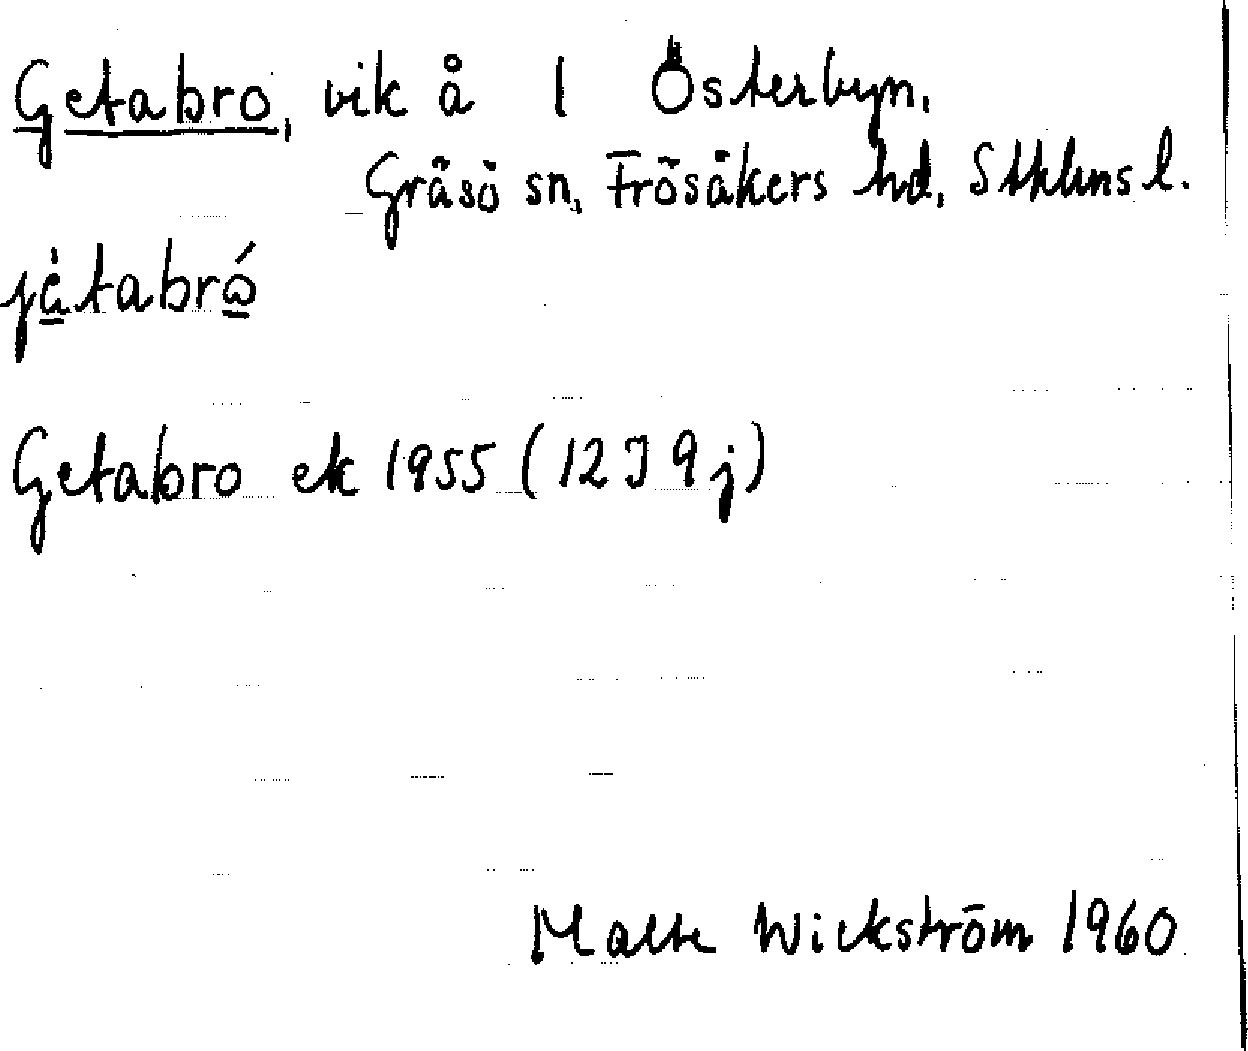 Getabro, vik å 1 Österbyn,
Gräsö sn, Frösåkers hd, Sthlms l.
Getabro ek 1955 (12 J 9 j)
Malte Wickström 1960